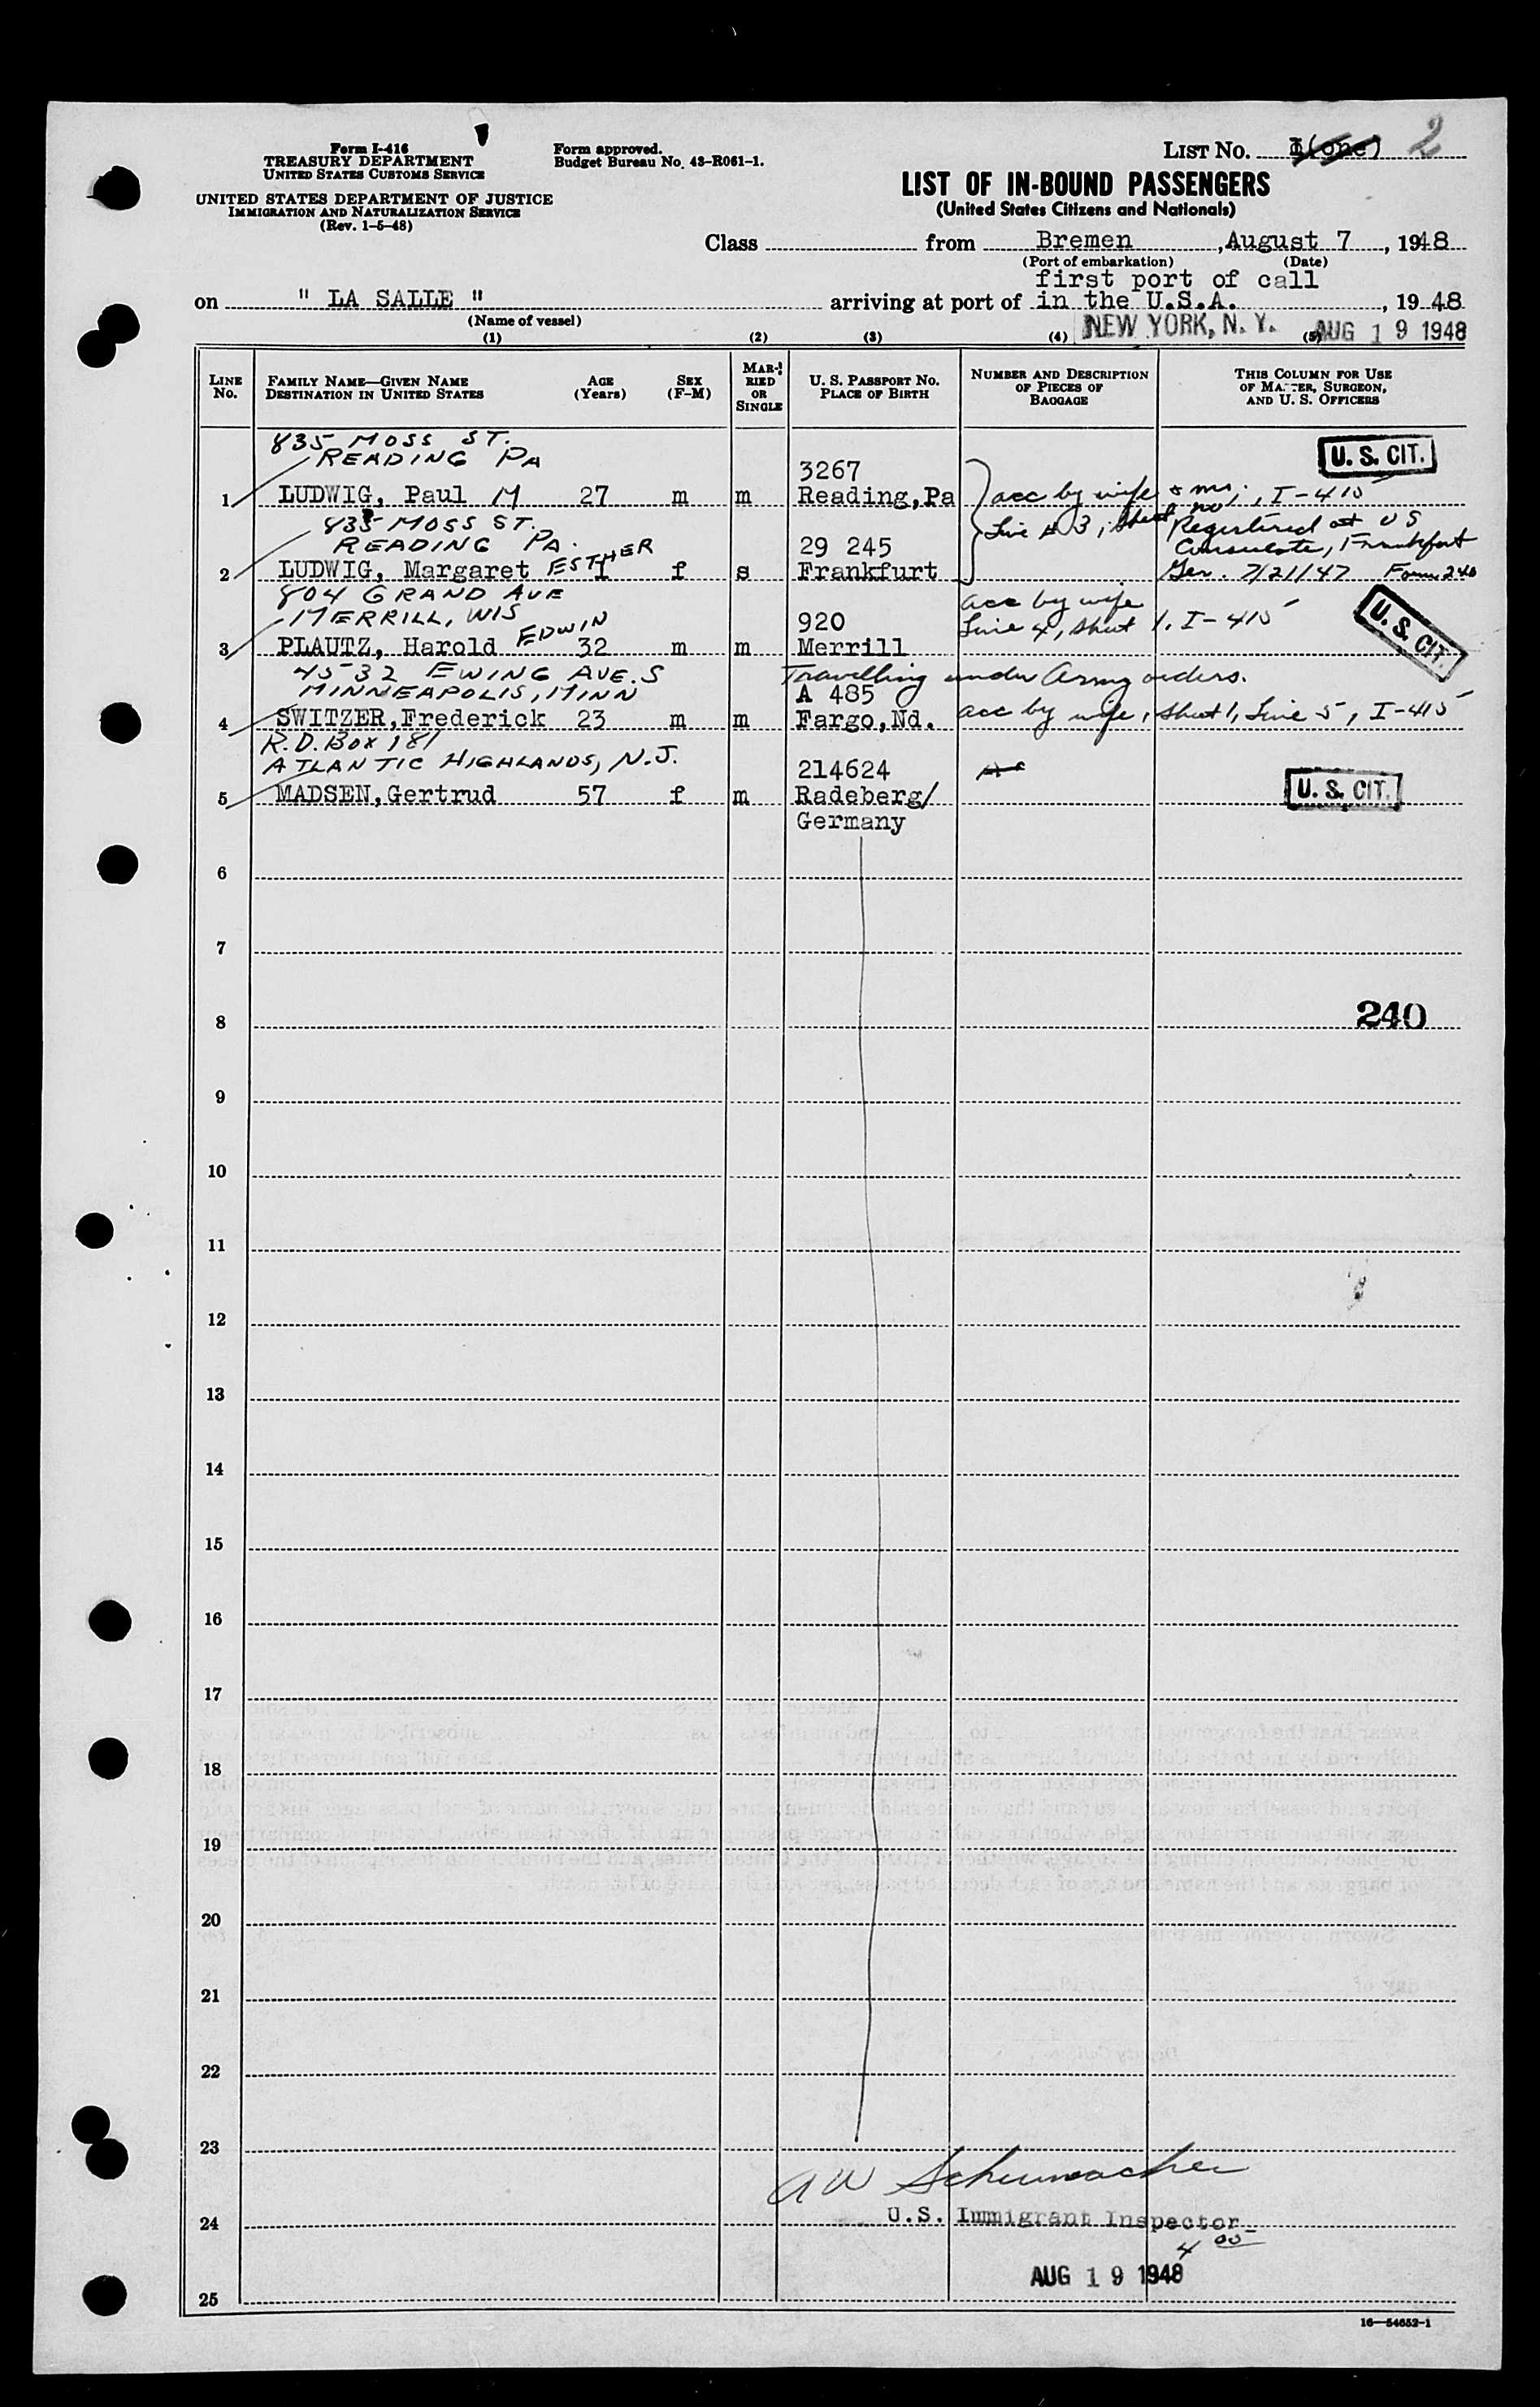 Form I-416
TREASURY DEPARTMENT
UNITED STATES CUSTOMS SERVICE
UNITED STATES DEPARTMENT OF JUSTICE
IMMIGRATION AND NATURALIZATION SERVICE
(Rev. 1-5-48)
Form approved.
Budget Bureau No. 43-R061-1.
LIST NO. 1(one) 2
LIST OF IN-BOUND PASSENGERS
(United States Citizens and Nationals)
Class from Bremen , August 7 , 1948
(Port of embarkation) (Date)
first port of call
on " LA SALLE " arriving at port of in the U.S.A. , 19 48
(Name of vessel) NEW YORK, N. Y. AUG 19 1948
(1) (2) (3) (4) (5)
LINE No. FAMILY NAME—GIVEN NAME DESTINATION IN UNITED STATES AGE (Years) SEX (F-M) MARRIED OR SINGLE U. S. PASSPORT NO. PLACE OF BIRTH NUMBER AND DESCRIPTION OF PIECES OF BAGGAGE THIS COLUMN FOR USE OF MASTER, SURGEON, AND U. S. OFFICERS
835 MOSS ST.
READING PA 3267 U. S. CIT.
1 LUDWIG, Paul M 27 m m Reading,Pa acc by wife , I-415
835 MOSS ST. Line 3, Sheet Registered at US
READING PA. 29 245 Consulate, Frankfort
2 LUDWIG, Margaret ESTHER 1 f s Frankfurt Ger. 7/21/47 Form 240
804 GRAND AVE acc by wife
MERRILL, WIS 920 Line 4, Sheet 1. I-415 U. S. CIT.
3 PLAUTZ, Harold EDWIN 32 m m Merrill
4532 EWING AVE. S Travelling under Army orders.
MINNEAPOLIS, MINN A 485
4 SWITZER,Frederick 23 m m Fargo,Nd. acc by wife, Sheet 1, Line 5, I-415
R.D. BOX 181
ATLANTIC HIGHLANDS, N.J. 214624
5 MADSEN,Gertrud 57 f m Radeberg/ U. S. CIT.
Germany
6
7
8 240
9
10
11
12
13
14
15
16
17
18
19
20
21
22
23
A W Schumacher
24 U.S. Immigrant Inspector
4 00
AUG 19 1948
25
16—54652-1